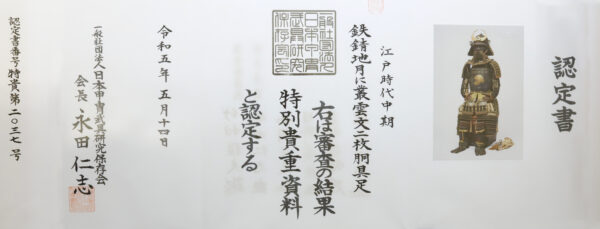 認定書
江戸時代中期
鉄錆地月に叢雲文二枚胴具足
右は審査の結果
特別貴重資料
と認定する
令和五年五月十四日
一般社団法人日本甲冑武具研究保存会
会長 永田仁志
認定書番号特貴第二〇三七号